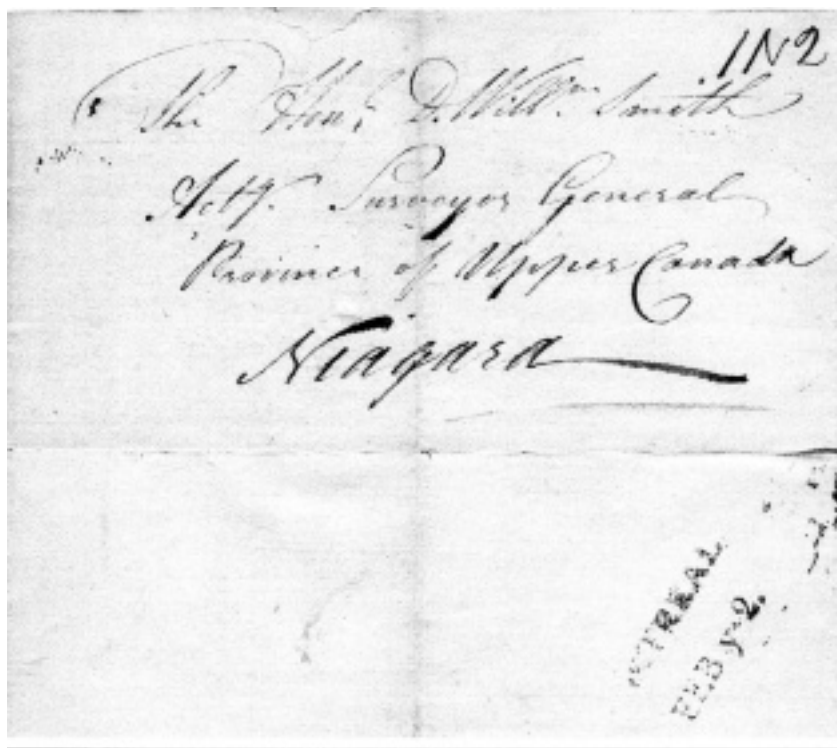 1N2
The Honl. D. Willm. Smith
Actg. Surveyor General
Province of Upper Canada
Niagara
NTREAL
FEB y 2.